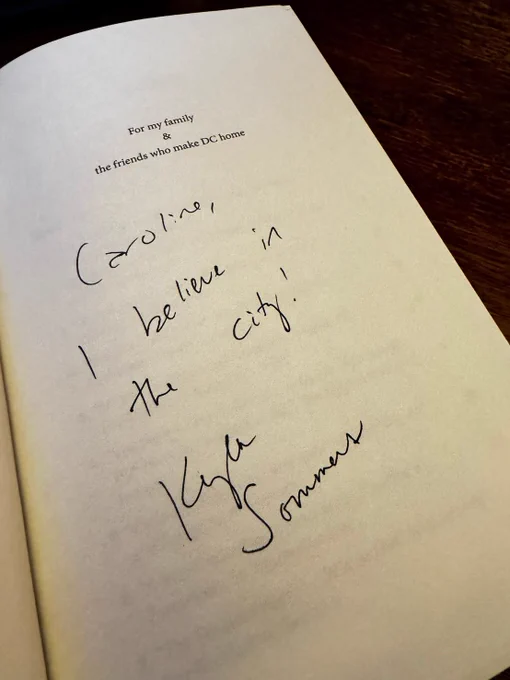 For my family
&
the friends who make DC home
Caroline,
I believe in
the city!
Kyla
Sommers